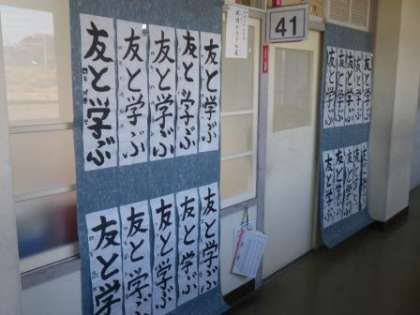 友と学ぶ
友と学ぶ
友と学ぶ
友と学ぶ
友と学ぶ
友と学ぶ
友と学ぶ
友と学ぶ
友と学ぶ
友と学ぶ
41
友と学ぶ
友と学ぶ
友と学ぶ
友と学ぶ
友と学ぶ
友と学ぶ
友と学ぶ
友と学ぶ